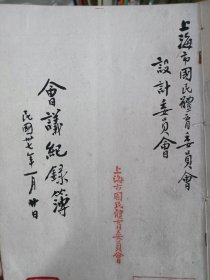 上海市國民體育委員會
設計委員會
上海市國民體育委員會
會議紀錄簿
民國卅七年一月廿日